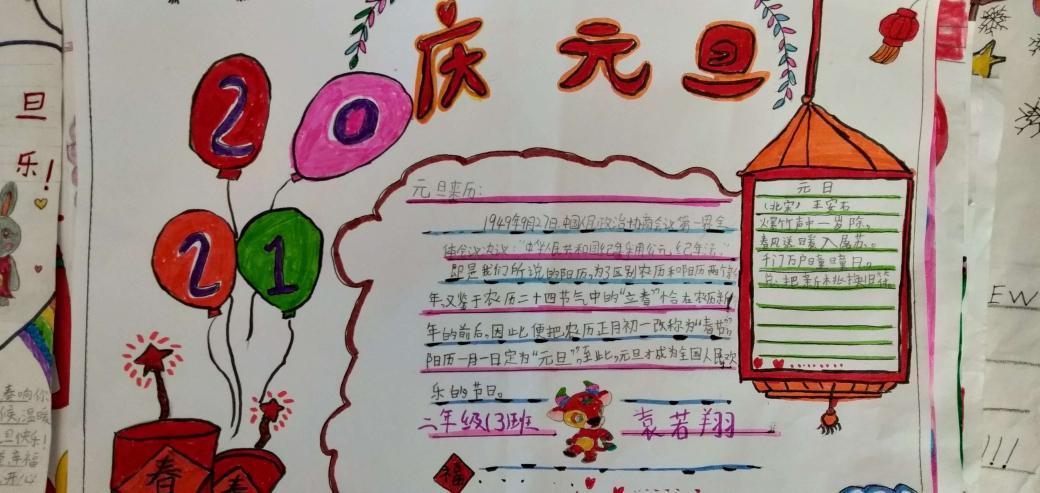 庆元旦
2021
元旦来历:
1949年9月27日,中国人民政治协商会议第一届全
体会议决议:"中华人民共和国纪年采用公元纪年法。"
即是我们所说的阳历,为了区别农历和阳历两个新
年,又鉴于农历二十四节气中的"立春"恰在农历新
年的前后,因此便把农历正月初一改称为"春节",
阳历一月一日定为"元旦",至此,元旦才成为全国人民欢
乐的节日。
二年级(3)班 袁若翔
福
元日
(北宋)王安石
爆竹声中一岁除,
春风送暖入屠苏。
千门万户曈曈日,
总把新桃换旧符
春
春
旦
乐!
奏响你
候,温暖
旦快乐!
幸福
开心
EW
!!!